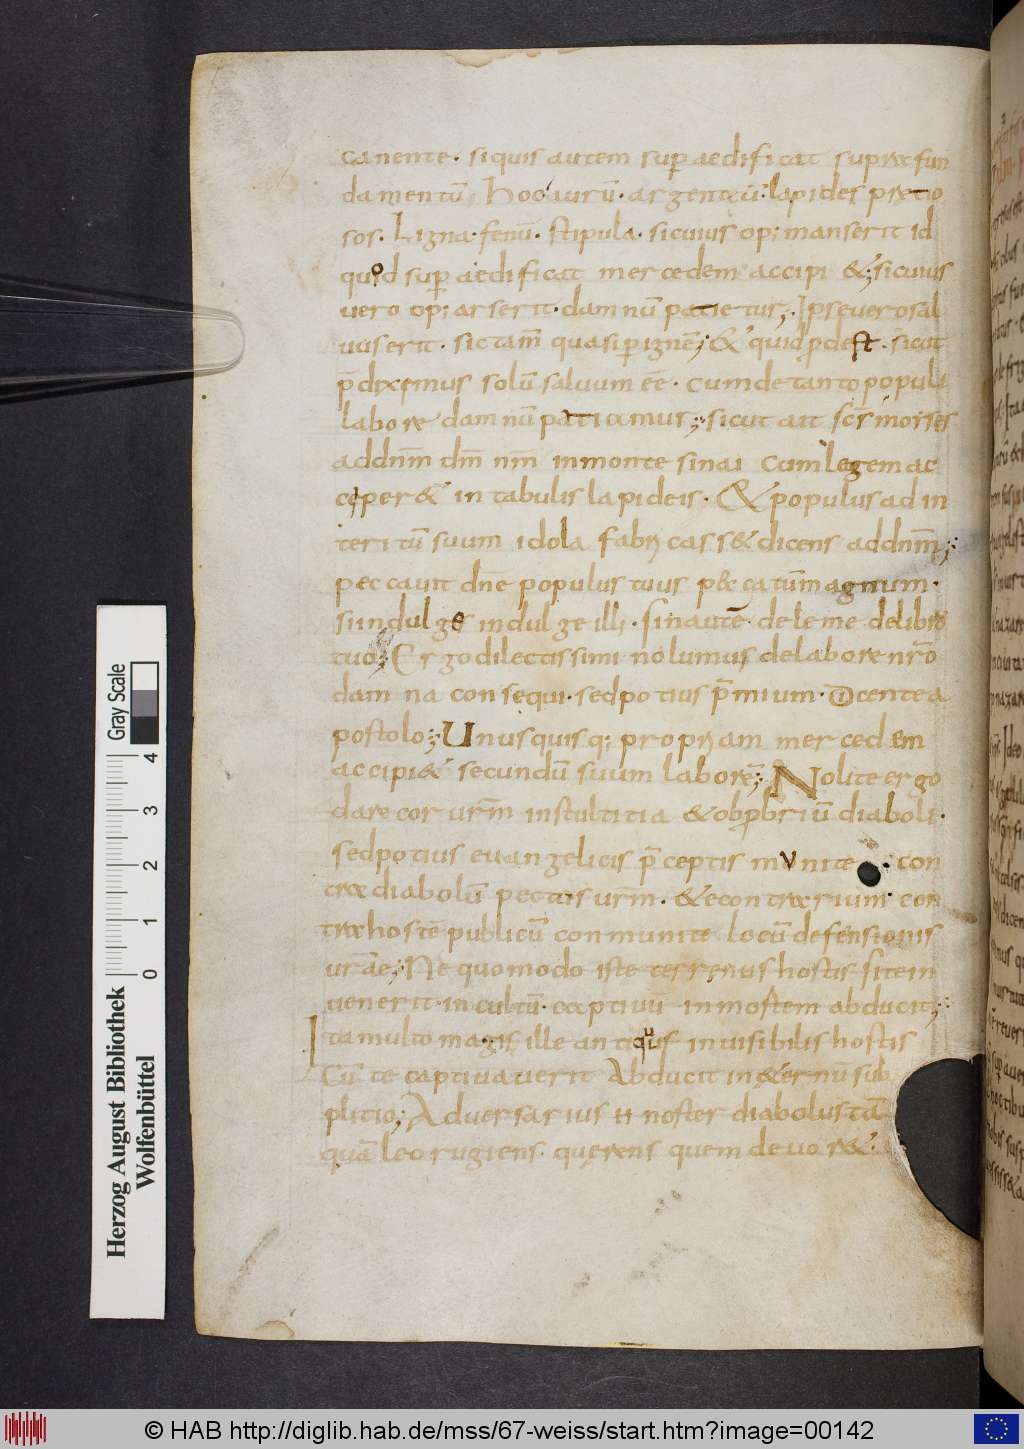 canente. siquis autem sup̄ aedificat supra fun
damentū hoc aurū. argentū. lapides pretio
sos. Ligna. fenū. stipula. sicuius op; manserit id
quod sup̄ aedificat mercedem accipi &; sicuius
uero op; arserit. damnū patietur; Ipse uero sal
uus erit. sic tam̄ quasi p̱ ignē; & quid ꝓdest. sicut
p̄diximus solū saluum ēē. cum de tanto populi
labore damnū patiamur; sicut ait scs̄ moises
ad dnm̄ dm̄ nm̄ in monte sinai cum legem ac
ceper& in tabulis lapideis. & populus ad in
teritū suum idola fabricass& dicens ad dnm̄;
peccauit dn̄e populus tuus peccatū magnum.
si indulges indulge illi. sin autē. dele me de libro
tuo; Ergo dilectissimi nolumus de labore nr̄o
damna consequi. sed potius p̄mium. Dicente a
postolo; Unusquisq; propriam mercedem
accipi& secundū suum laborē; Nolite ergo
dare cor urm̄ in stultitia & obꝓbriū diaboli.
sed potius euangelicis p̄ceptis munite. con
tra diabolū pectus urm̄. & econtrarium con
tra hostē publicū conmunite locū defensionis
urāe; Ne quomodo iste terrenus hostis si te in
uenerit incultū. captiuū in mostem abducit;
Ita multo magis ille antiquus inuisibilis hostis
Cis te captiuauerit Abducit in &ernū sub
plitio; Aduersarius n̄ noster diabolus tā
quā leo rugiens. querens quem deuor&.
Gray Scale
4
3
2
1
0
Herzog August Bibliothek
Wolfenbüttel
© HAB http://diglib.hab.de/mss/67-weiss/start.htm?image=00142